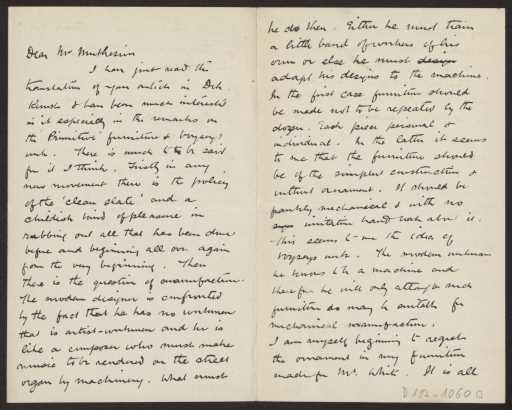 Dear Mr. Muthesius
I have just read the
translation of your article in Dek.
Kunst & have been much interested
in it especially in the remarks on
the 'Primitive' furniture & Voysey's
work. There is much to be said
for it I think. Firstly in any
new movement there is the policy
of the 'clean slate' and a
childish kind of pleasure in
rubbing out all that has been done
before and beginning all over again
from the very beginning. Then
there is the question of manufacture.
The modern designer is confronted
by the fact that he has no workmen
that is artist-workmen and he is
like a composer who must make
music to be rendered on the street
organ by machinery. What must
he do then. Either he must train
a little band of workers of his
own or else he must design
adapt his designs to the machine.
In the first case furniture should
be made not to be repeated by the
dozen. Each piece personal &
individual. In the latter it seems
to me that the furniture should
be of the simplest construction &
without ornament. It should be
frankly mechanical & with no
imitation hand work about it.
This seems to me the idea of
Voyseys work. The modern workman
he knows to be a machine and
therefore he will only attempt such
furniture as may be suitable for
mechanical manufacture.
I am myself beginning to regret
the ornament in my furniture
made for Mr. White. It is all
D 102-1060